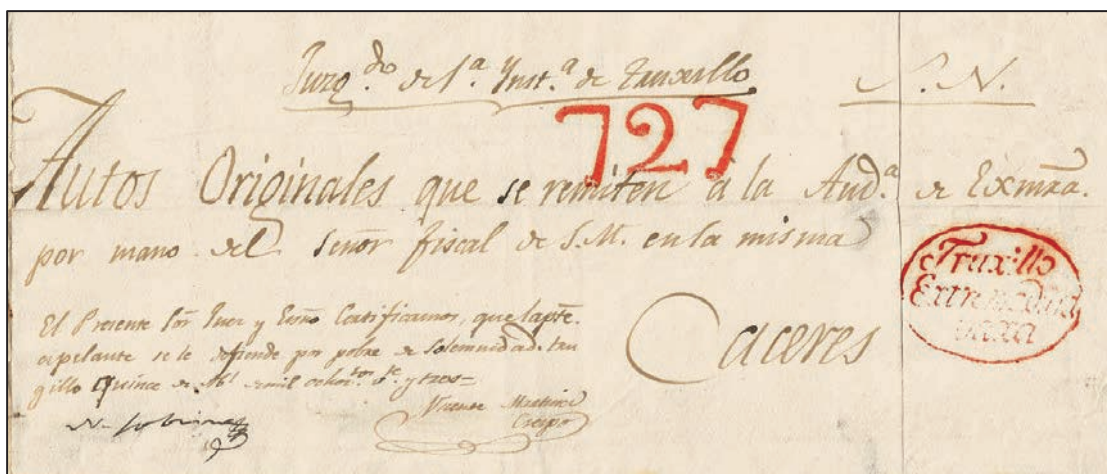 Juzg.do de 1.ª Ynst.ª de Truxillo S. N.
727
Autos Originales que se remiten á la Aud.ª de Exmra.
por mano del Señor fiscal de S.M. en la misma
Caceres
Truxillo
Extremadura
baxa
El Presente Sor Juez y Essno Certificamos, que la pte.
apelante se le defiende por pobre de Solemnidad. tru
gillo Quince de mil y tres=
Vicente Martinez
Crespo